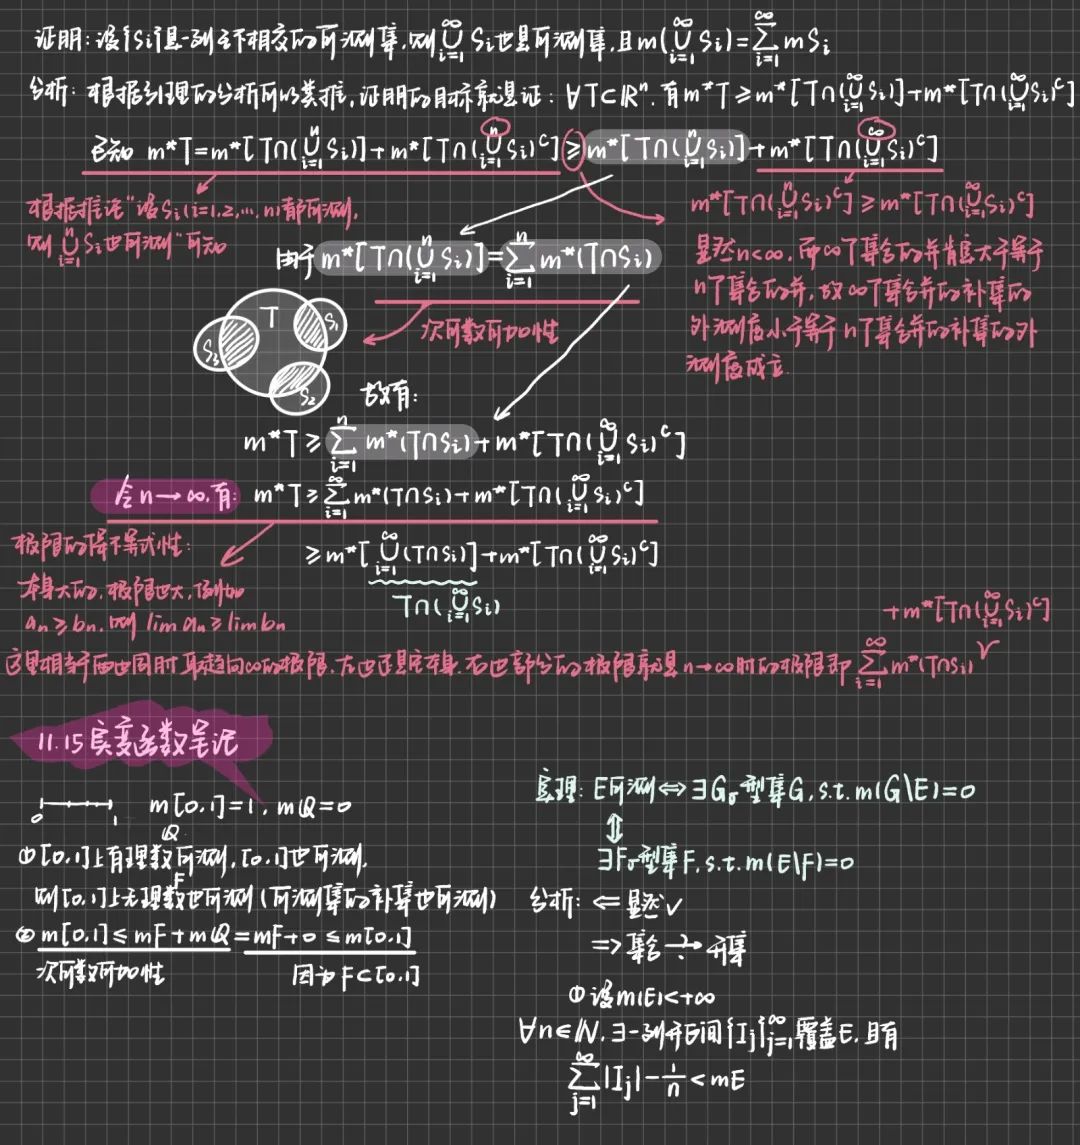 证明:设{Si}是一列互不相交的可测集,则⋃_{i=1}^{∞} Si也是可测集,且m(⋃_{i=1}^{∞} Si)=∑_{i=1}^{∞} mSi
分析:根据引理的分析可以类推,证明的目标就是证:∀T⊂ℝⁿ,有m*T≥m*[T∩(⋃_{i=1}^{∞} Si)]+m*[T∩(⋃_{i=1}^{∞} Si)^c]
已知 m*T=m*[T∩(⋃_{i=1}^{n} Si)]+m*[T∩(⋃_{i=1}^{n} Si)^c]≥m*[T∩(⋃_{i=1}^{n} Si)]+m*[T∩(⋃_{i=1}^{∞} Si)^c]
根据推论“设Si(i=1,2,…,n)都可测,
则⋃_{i=1}^{n} Si也可测”可知
m*[T∩(⋃_{i=1}^{n} Si)^c]≥m*[T∩(⋃_{i=1}^{∞} Si)^c]
显然n<∞,而∞个集合的并肯定大于等于
n个集合的并,故∞个集合并的补集的
外测度小于等于n个集合并的补集的外
测度成立.
由于m*[T∩(⋃_{i=1}^{n} Si)]=∑_{i=1}^{n} m*(T∩Si)
次可数可加性
T
S₁
S₃
S₂
故有:
m*T≥∑_{i=1}^{n} m*(T∩Si)+m*[T∩(⋃_{i=1}^{∞} Si)^c]
令n→∞,有: m*T≥∑_{i=1}^{∞} m*(T∩Si)+m*[T∩(⋃_{i=1}^{∞} Si)^c]
≥m*[⋃_{i=1}^{∞}(T∩Si)]+m*[T∩(⋃_{i=1}^{∞} Si)^c]
T∩(⋃_{i=1}^{∞} Si)
极限的保不等式性:
本身大的,极限也大,例如
an≥bn,则 lim an≥lim bn
+m*[T∩(⋃_{i=1}^{∞} Si)^c]
这里相当于两边同时取趋向∞的极限,左边还是它本身,右边部分的极限就是n→∞时的极限即∑_{i=1}^{∞} m*(T∩Si)
11.15实变函数笔记
0 1
m[0,1]=1, mQ=0
Q
①[0,1]上有理数可测,[0,1]也可测,
F
则[0,1]上无理数也可测(可测集的补集也可测)
②m[0,1]≤mF+mQ=mF+0≤m[0,1]
次可数可加性 因为F⊂[0,1]
定理: E可测⇔∃Gσ型集G, s.t. m(G\E)=0
⇕
∃Fσ型集F, s.t. m(E\F)=0
分析: ⇐显然✓
⇒集合 →? 开集
①设m(E)<+∞
∀n∈ℕ,∃一列开区间{Ij}_{j=1}^{∞}覆盖E,且有
∑_{j=1}^{∞}|Ij|-1/n<mE